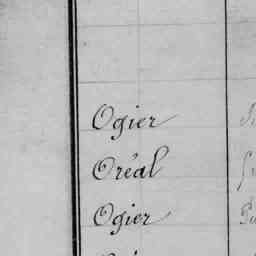 Ogier
Oréal
Ogier